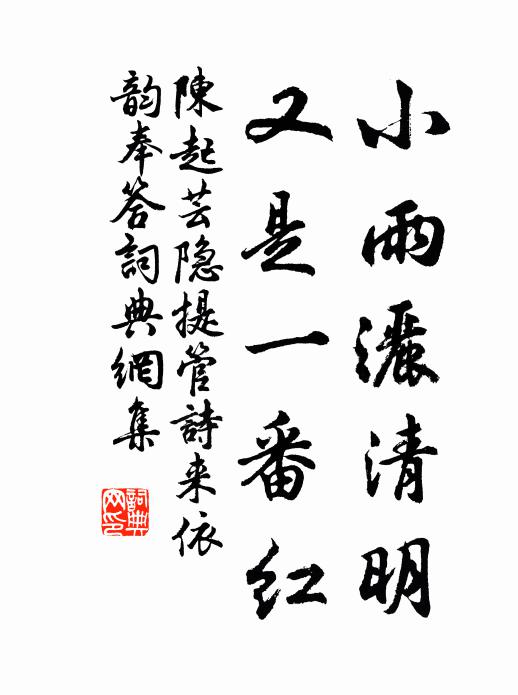 小雨灑清明
又是一番紅
陳起芸隐提管詩来依
韵奉答詞典網集
詞典网印